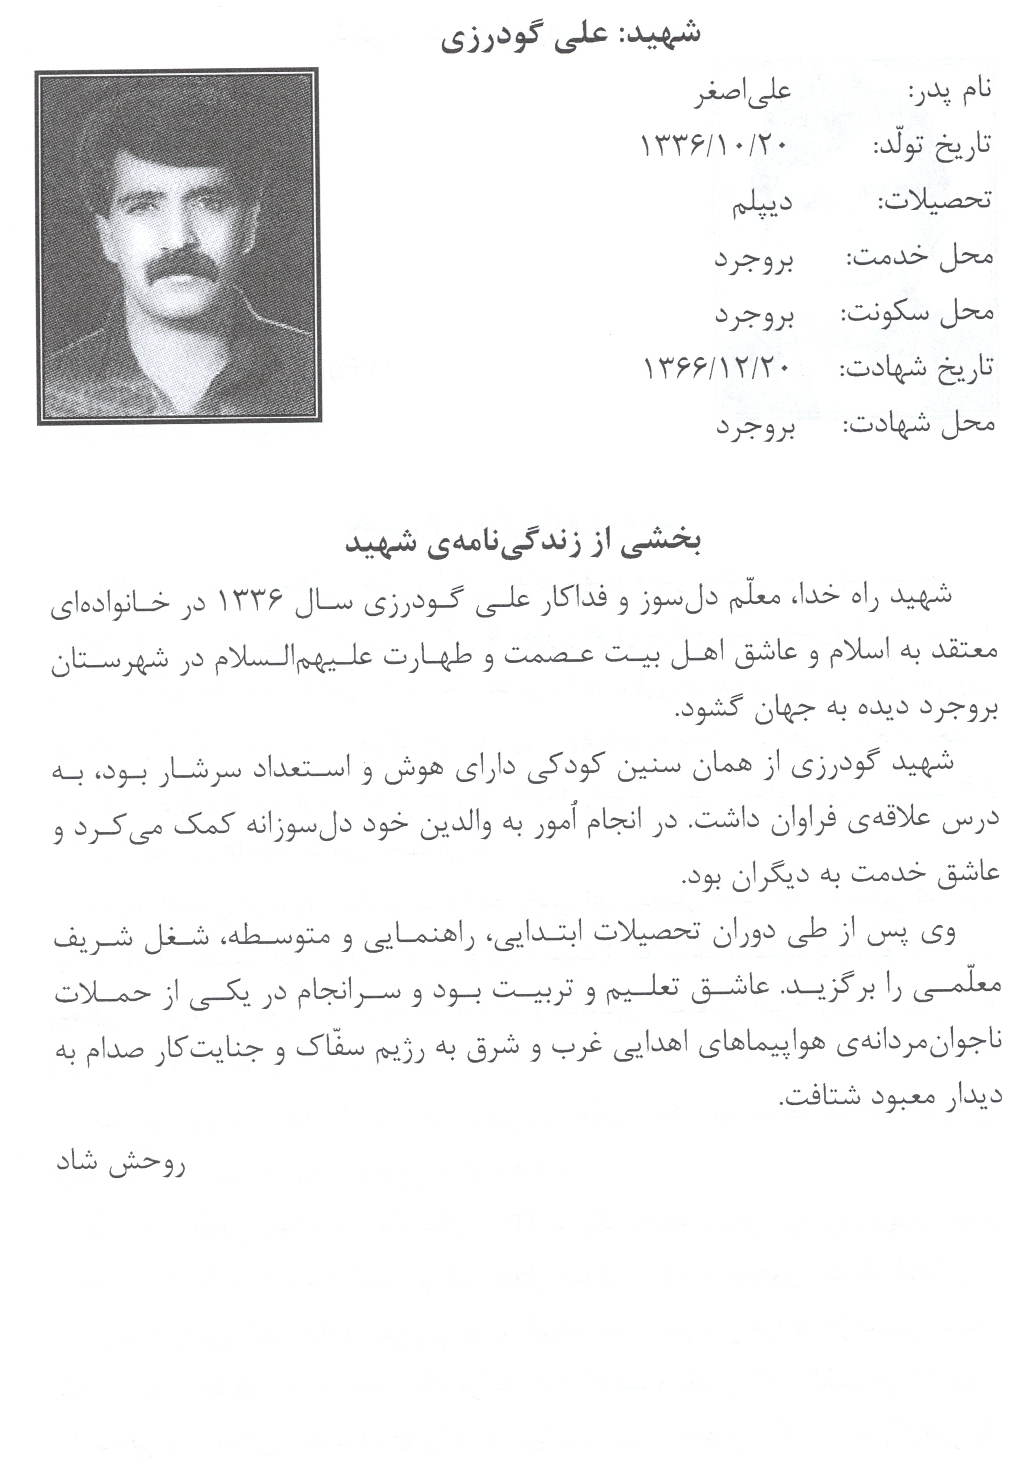 شهید: علی گودرزی
نام پدر: علی‌اصغر
تاریخ تولّد: ۱۳۳۶/۱۰/۲۰
تحصیلات: دیپلم
محل خدمت: بروجرد
محل سکونت: بروجرد
تاریخ شهادت: ۱۳۶۶/۱۲/۲۰
محل شهادت: بروجرد
بخشی از زندگی‌نامه‌ی شهید
شهید راه خدا، معلّم دل‌سوز و فداکار علی گودرزی سال ۱۳۳۶ در خانواده‌ای
معتقد به اسلام و عاشق اهل بیت عصمت و طهارت علیهم‌السلام در شهرستان
بروجرد دیده به جهان گشود.
شهید گودرزی از همان سنین کودکی دارای هوش و استعداد سرشار بود، به
درس علاقه‌ی فراوان داشت. در انجام اُمور به والدین خود دل‌سوزانه کمک می‌کرد و
عاشق خدمت به دیگران بود.
وی پس از طی دوران تحصیلات ابتدایی، راهنمایی و متوسطه، شغل شریف
معلّمی را برگزید. عاشق تعلیم و تربیت بود و سرانجام در یکی از حملات
ناجوان‌مردانه‌ی هواپیماهای اهدایی غرب و شرق به رژیم سفّاک و جنایت‌کار صدام به
دیدار معبود شتافت.
روحش شاد